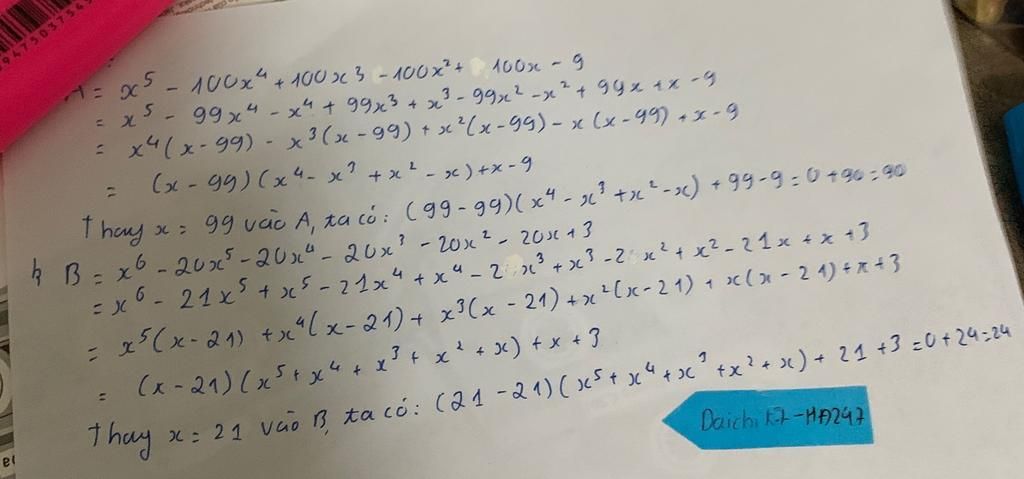 A = x⁵ - 100x⁴ + 100x³ - 100x² + 100x - 9
= x⁵ - 99x⁴ - x⁴ + 99x³ + x³ - 99x² - x² + 99x + x - 9
= x⁴(x - 99) - x³(x - 99) + x²(x - 99) - x(x - 99) + x - 9
= (x - 99)(x⁴ - x³ + x² - x) + x - 9
thay x = 99 vào A, ta có: (99 - 99)(x⁴ - x³ + x² - x) + 99 - 9 = 0 + 90 = 90
B = x⁶ - 20x⁵ - 20x⁴ - 20x³ - 20x² - 20x + 3
= x⁶ - 21x⁵ + x⁵ - 21x⁴ + x⁴ - 2 x³ + x³ - 2 x² + x² - 21x + x + 3
= x⁵(x - 21) + x⁴(x - 21) + x³(x - 21) + x²(x - 21) + x(x - 21) + x + 3
= (x - 21)(x⁵ + x⁴ + x³ + x² + x) + x + 3
thay x = 21 vào B, ta có: (21 - 21)(x⁵ + x⁴ + x³ + x² + x) + 21 + 3 = 0 + 24 = 24
Daichi K7-HD247